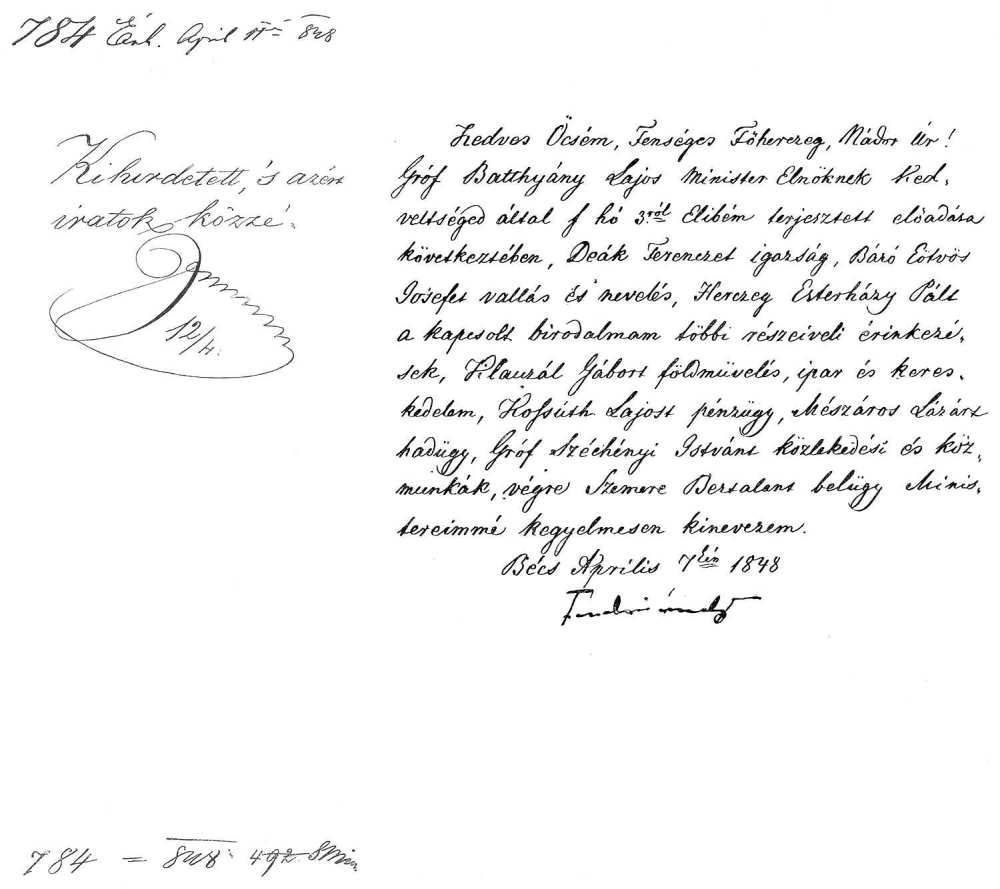 784 Érk. April 11én 848
Kihirdetett, 's azért
iratok közzé.
12/4.
Kedves Öcsém, Fenséges Főherczeg, Nádor Úr!
Gróf Batthyány Lajos Minister Elnöknek Ked-
veltséged által f hó 3ról Elibém terjesztett előadása
következtében, Deák Ferenczet igazság, Báró Eötvös
Josefet vallás és nevelés, Herczeg Esterházy Pált
a kapcsolt birodalmam többi részeiveli érinkezé-
sek, Klauzál Gábort földmüvelés, ipar és keres-
kedelem, Kossúth Lajost pénzügy, Mészáros Lázárt
hadügy, Gróf Széchényi Istvánt közlekedési és köz-
munkák, végre Szemere Bertalant belügy Minis-
tereimmé kegyelmesen kinevezem.
Bécs Április 7én 1848
784 = 848. 492